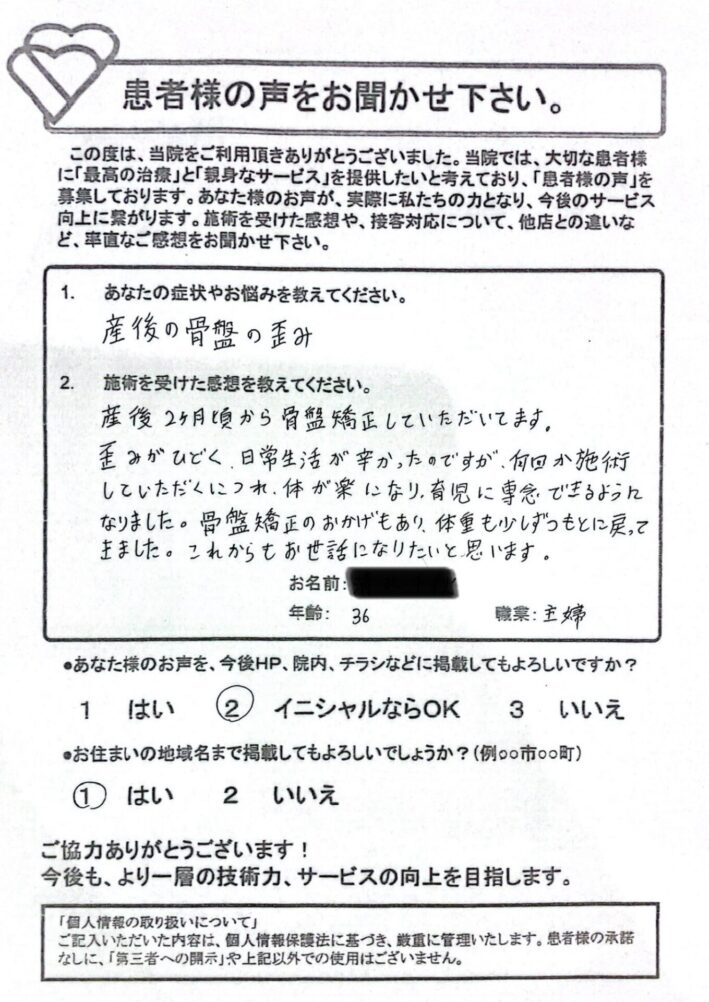 患者様の声をお聞かせ下さい。
この度は、当院をご利用頂きありがとうございました。当院では、大切な患者様
に「最高の治療」と「親身なサービス」を提供したいと考えており、「患者様の声」を
募集しております。あなた様のお声が、実際に私たちの力となり、今後のサービス
向上に繋がります。施術を受けた感想や、接客対応について、他店との違いな
ど、率直なご感想をお聞かせ下さい。
1. あなたの症状やお悩みを教えてください。
産後の骨盤の歪み
2. 施術を受けた感想を教えてください。
産後2ヶ月頃から骨盤矯正していただいてます。
歪みがひどく、日常生活が辛かったのですが、何回か施術
していただくにつれ、体が楽になり、育児に専念できるように
なりました。骨盤矯正のおかげもあり、体重も少しずつもとに戻って
きました。これからもお世話になりたいと思います。
お名前:
年齢: 36 職業: 主婦
●あなた様のお声を、今後HP、院内、チラシなどに掲載してもよろしいですか?
1 はい ② イニシャルならOK 3 いいえ
●お住まいの地域名まで掲載してもよろしいでしょうか?(例○○市○○町)
① はい 2 いいえ
ご協力ありがとうございます!
今後も、より一層の技術力、サービスの向上を目指します。
「個人情報の取り扱いについて」
ご記入いただいた内容は、個人情報保護法に基づき、厳重に管理いたします。患者様の承諾
なしに、「第三者への開示」や上記以外での使用はございません。